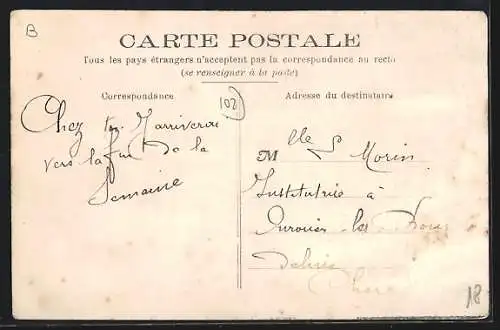 B
CARTE POSTALE
Tous les pays étrangers n'acceptent pas la correspondance au recto
(se renseigner à la poste)
Correspondance
102
Adresse du destinataire
Chez
vers la fin de la
Semaine
Mlle Morin
Institutrice à
les
Cher
18